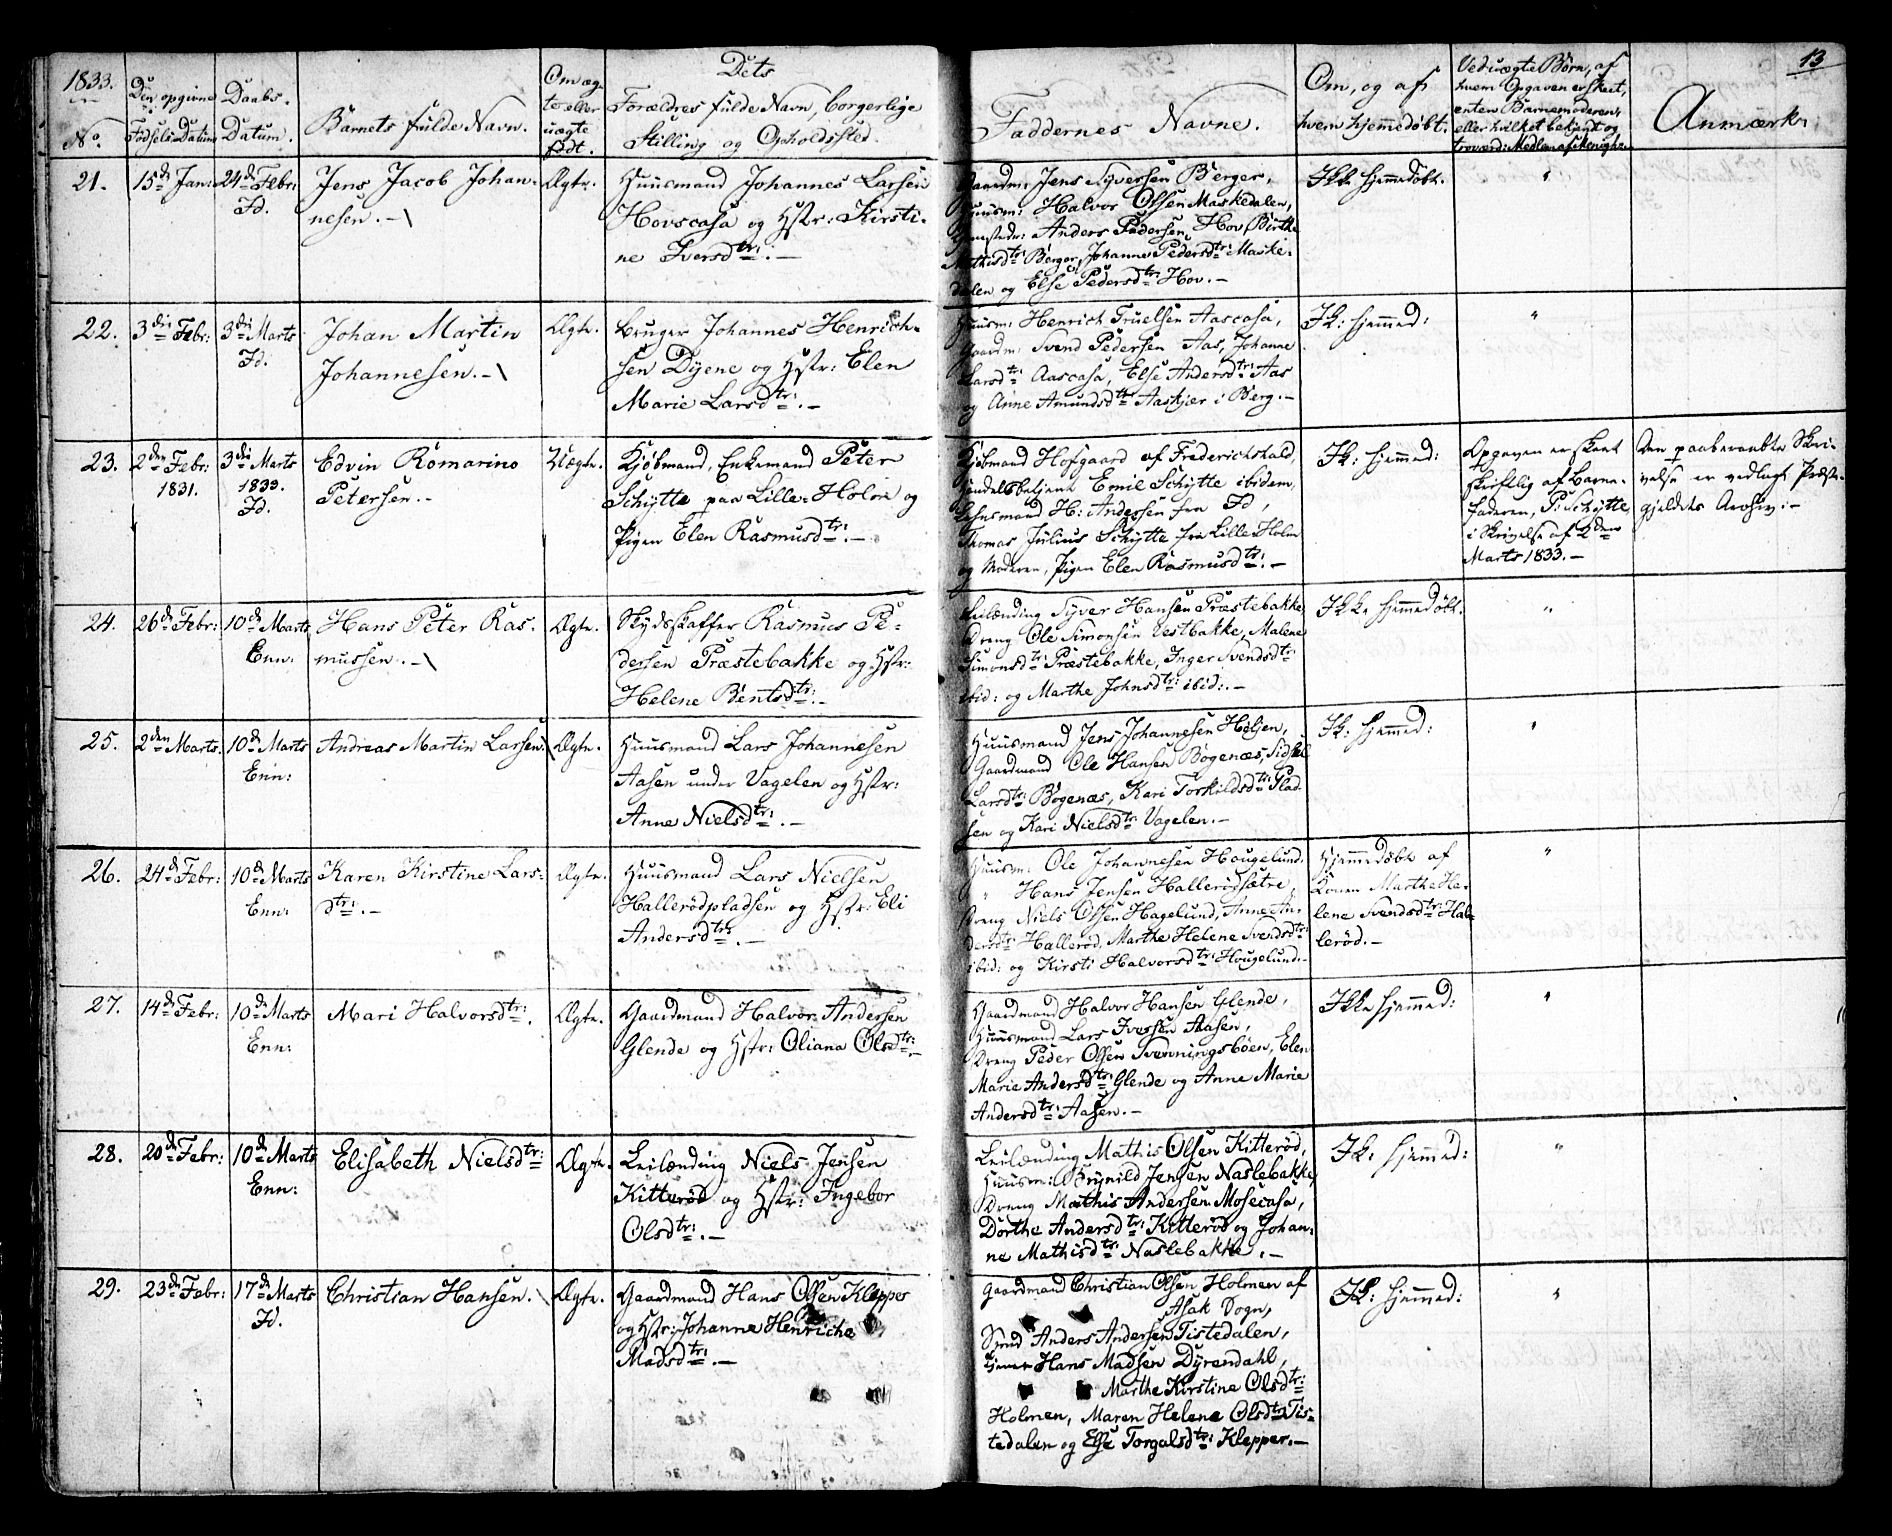 1833.
No.
Den opgivne
Fødsels-Datum
Daabs-
Datum.
Barnets fulde Navn.
Om æg
te eller
uægte
født.
Dets
Forældres fulde Navn, borgerlige
Stilling og Opholdssted.
Faddernes Navne.
Om, og af
hvem hjemmedøbt.
Ved uægte Børn, af
hvem Opgaven er skeet,
enten Barnemoderen,
eller hvilket bekjendt og
troværd: Medlem af Menigh.
Anmærk.
13
21.
15de Jan:
24de Febr:
Id.
Jens Jacob Johan-
nesen.
Ægte.
Huusmand Johannes Larsen
Hovscasa og Hstr: Kirsti-
ne Iversdtr:.
Gaardm: Jens Syversen Berger,
Huusm: Halvor Olsen Maskedalen,
Anders Pedersen Hov, Birthe
Mathisdtr: Berger, Johanne Pedersdtr: Maske-
dalen og Else Pedersdtr: Hov.
Ikke hjemmedøbt.
"
22.
3die Febr:
3die Marts
Id.
Johan Martin
Johannesen.
Ægte.
Bruger Johannes Henrich-
sen Dyene og Hstr: Elen
Marie Larsdtr:.
Huusm: Henrich Truelsen Aascasa,
Gaardm: Svend Pedersen Aas, Johanne
Larsdtr: Aascasa, Else Andersdtr: Aas
og Anne Amundsdtr Aaskjær i Berg.
Ik: hjemmed:
"
23.
2den Febr:
1831.
3die Marts
1833.
Id.
Edvin Romarino
Petersen.
Uægte.
Kjøbmand, Enkemand Peter
Schytte paa Lille-Holm og
Pigen Elen Rasmusdtr:.
Kjøbmand Hofgaard af Frederichshald,
Handelsbetjent Emil Schytte ibidem,
Lehnsmand H: Andersen fra Id,
Thomas Julius Schytte fra Lille Holm
og Moderen, Pigen Elen Rasmusdtr:.
Ik: hjemmed:
Opgaven er skeet
skriftlig af Barne-
faderen, P: Schytte
i Skrivelse af 2den
Marts 1833.
Den paaberaabte Skri-
velse er vedlagt Præste-
gjeldets Archiv:
24.
26de Febr:
10de Marts
Enn:
Hans Peter Ras-
mussen.
Ægte.
Skydsskaffer Rasmus Pe-
dersen Præstebakke og Hstr:
Helene Bentsdtr:.
Leilænding Syver Hansen Præstebakke,
Dreng Ole Simonsen Vestbakke, Malene
Simonsdtr: Præstebakke, Inger Svendsdtr:
ibid: og Marthe Johnsdtr: ibid:.
Ikke hjemmedøbt.
"
25.
2den Marts.
10de Marts
Enn:
Andreas Martin Larsen.
Ægte.
Huusmand Lars Johannesen
Aasen under Vagelen og Hstr:
Anne Nielsdtr:.
Huusmand Jens Johannesen Høljen,
Gaardmand Ole Hansen Bøgenæs, Sidsel
Larsdtr: Bøgenæs, Kari Torkildsdtr: Plad-
sen og Kari Nielsdtr: Vagelen.
Ik: hjemmed:
"
26.
24de Febr:
10de Marts
Enn:
Karen Kirstine Lars-
dtr:.
Ægte.
Huusmand Lars Nielsen
Hallerødpladsen og Hstr: Eli
Andersdtr:.
Huusm: Ole Johannesen Hougelund,
" Hans Jensen Hallerødsætre,
Dreng Niels Olsen Hagelund, Anne An-
dersdtr: Hallerød, Marthe Helene Svendsdtr:
ibid: og Kirsti Halvorsdtr: Hougelund.
Hjemmedøbt af
Konen Marthe He-
lene Svendsdtr: Hal-
lerød.
"
27.
14de Febr:
10de Marts
Enn:
Mari Halvorsdtr:.
Ægte.
Gaardmand Halvor Andersen
Glende og Hstr: Oliana Olsdtr:.
Gaardmand Halvor Hansen Glende,
Huusmand Lars Iversen Aasen,
Dreng Peder Olsen Svenningsbøen, Elen
Marie Andersdtr: Glende og Anne Marie
Andersdtr: Aasen.
Ikke hjemmed:
"
28.
20de Febr:
10de Marts
Enn:
Elisabeth Nielsdtr:
Ægte.
Leilænding Niels Jensen
Kitterød og Hstr: Ingebor
Olsdtr:.
Leilænding Mathis Olsen Kitterød,
Huusm: Brynild Jensen Naslebakke,
Dreng Mathis Andersen Mosecasa,
Dorthe Andersdtr: Kitterød og Johan-
ne Mathisdtr: Naslebakke.
Ik: hjemmed:
"
29.
23de Febr:
17de Marts
Id.
Christian Hansen.
Ægte.
Gaardmand Hans Olsen Klepper
og Hstr: Johanne Henriche
Madsdtr:.
Gaardmand Christian Olsen Holmen af
Asak Sogn,
Smed Anders Andersen Tistedalen,
Hans Madsen Dyrendahl,
Marthe Kirstine Olsdtr:
Holmen, Maren Helene Olsdtr: Tis-
tedalen og Else Torgalsdtr: Klepper.
Ik: hjemmed:
"